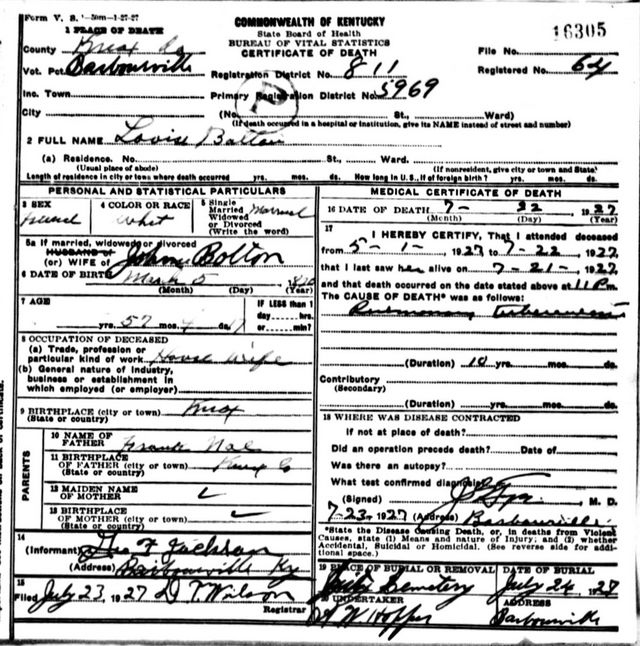 Form V. S. 1-50m-1-27-27
COMMONWEALTH OF KENTUCKY
State Board of Health
BUREAU OF VITAL STATISTICS
CERTIFICATE OF DEATH
16305
1 PLACE OF DEATH
County Knox Co
Vot. Pct. Barbourville
Inc. Town
City
Registration District No. 811
Primary Registration District No. 5969
File No.
Registered No. 64
(No. St., Ward)
(If death occurred in a hospital or institution, give its NAME instead of street and number)
2 FULL NAME Lovise Bolton
(a) Residence. No. St., Ward.
(Usual place of abode) (If nonresident, give city or town and State)
Length of residence in city or town where death occurred yrs. mos. ds. How long in U. S., if of foreign birth? yrs. mos. ds.
PERSONAL AND STATISTICAL PARTICULARS
3 SEX
4 COLOR OR RACE
Whit
5 Single
Married
Widowed
or Divorced
(Write the word)
Married
5a If married, widowed or divorced
HUSBAND of
(or) WIFE of John Bolton
6 DATE OF BIRTH 5
(Month) (Day) (Year)
7 AGE
yrs. 57 mos. 4 ds. 17
IF LESS than 1
day ..... hrs.
or ..... min?
8 OCCUPATION OF DECEASED
(a) Trade, profession or
particular kind of work House Wife
(b) General nature of industry,
business or establishment in
which employed (or employer)
9 BIRTHPLACE (city or town) Knox
(State or country)
PARENTS
10 NAME OF
FATHER Frank
11 BIRTHPLACE
OF FATHER (city or town) Knox Co
(State or country)
12 MAIDEN NAME
OF MOTHER ✓
13 BIRTHPLACE
OF MOTHER ✓
(State or country)
14
(Informant) Geo F Jackson
(Address) Barbourville Ky
15
Filed July 23, 1927 D T Wilson
Registrar
MEDICAL CERTIFICATE OF DEATH
16 DATE OF DEATH 7- 22 1927
(Month) (Day) (Year)
17
I HEREBY CERTIFY, That I attended deceased
from 5-1-1927 to 7-22, 1927
that I last saw her alive on 7-21-, 1927
and that death occurred on the date stated above at 11 P m.
The CAUSE OF DEATH* was as follows:
Pulmonary Tuberculosis
(Duration) 10 yrs. mos. ds.
Contributory
(Secondary)
(Duration) yrs. mos. ds.
18 WHERE WAS DISEASE CONTRACTED
If not at place of death?
Did an operation precede death? Date of
Was there an autopsy?
What test confirmed diagnosis?
(Signed) M. D.
7-23, 1927 (Address) Barbourville
*State the Disease Causing Death, or, in deaths from Violent
Causes, state (1) Means and nature of Injury; and (2) whether
Accidental, Suicidal or Homicidal. (See reverse side for addi-
tional space.)
19 PLACE OF BURIAL OR REMOVAL
Cemetery
DATE OF BURIAL
July 24, 1927
20 UNDERTAKER
W Hopper
ADDRESS
Barbourville